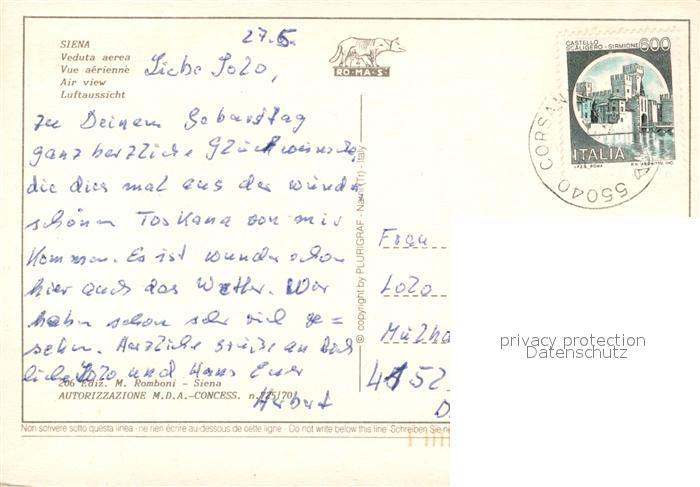 SIENA
Veduta aerea
Vue aérienne
Air view
Luftaussicht
RO·MA·S
CASTELLO
SCALIGERO - SIRMIONE
600
ITALIA
I.P.Z.S. ROMA
55040 CORSAN
27.5.
Liebe Lolo,
zu Deinem Geburtstag
ganz herzliche Glückwünsche,
die dies mal aus der wunder
schönen Toskana von mir
kommen. Es ist wunderschön
hier auch das Wetter. Wir
haben schon sehr viel ge=
sehen. Herzliche Grüße an Dich
liebe Lolo und Hans Euer
Herbert
© copyright by PLURIGRAF - Narni (Tr) - Italy
Frau
Lolo
Mülha
4152
D
206 Ediz. M. Romboni - Siena
AUTORIZZAZIONE M.D.A.-CONCESS. n. 125/70
Non scrivere sotto questa linea - ne rien écrire au-dessous de cette ligne - Do not write below this line - Schreiben Sie ni
privacy protection
Datenschutz